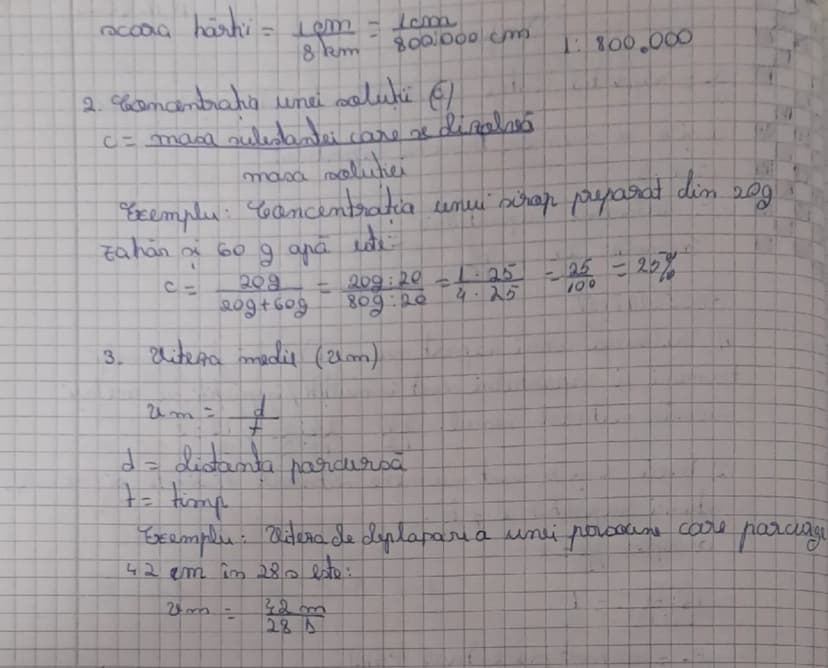 scara hărții = 1cm/8km = 1cm/800.000 cm 1: 800.000
2. Concentrația unei soluții (c)
c = masa substanței care se dizolvă
masa soluției
Exemplu: Concentrația unui sirop preparat din 20g
zahăr și 60 g apă este:
c = 20g/20g+60g = 20g:20/80g:20 = 1·25/4·25 = 25/100 = 25%
3. Viteza medie (vm)
vm = d/t
d = distanța parcursă
t = timp
Exemplu: Viteza de deplasare a unei persoane care parcurge
42 m în 28 s este:
vm = 42 m/28 s